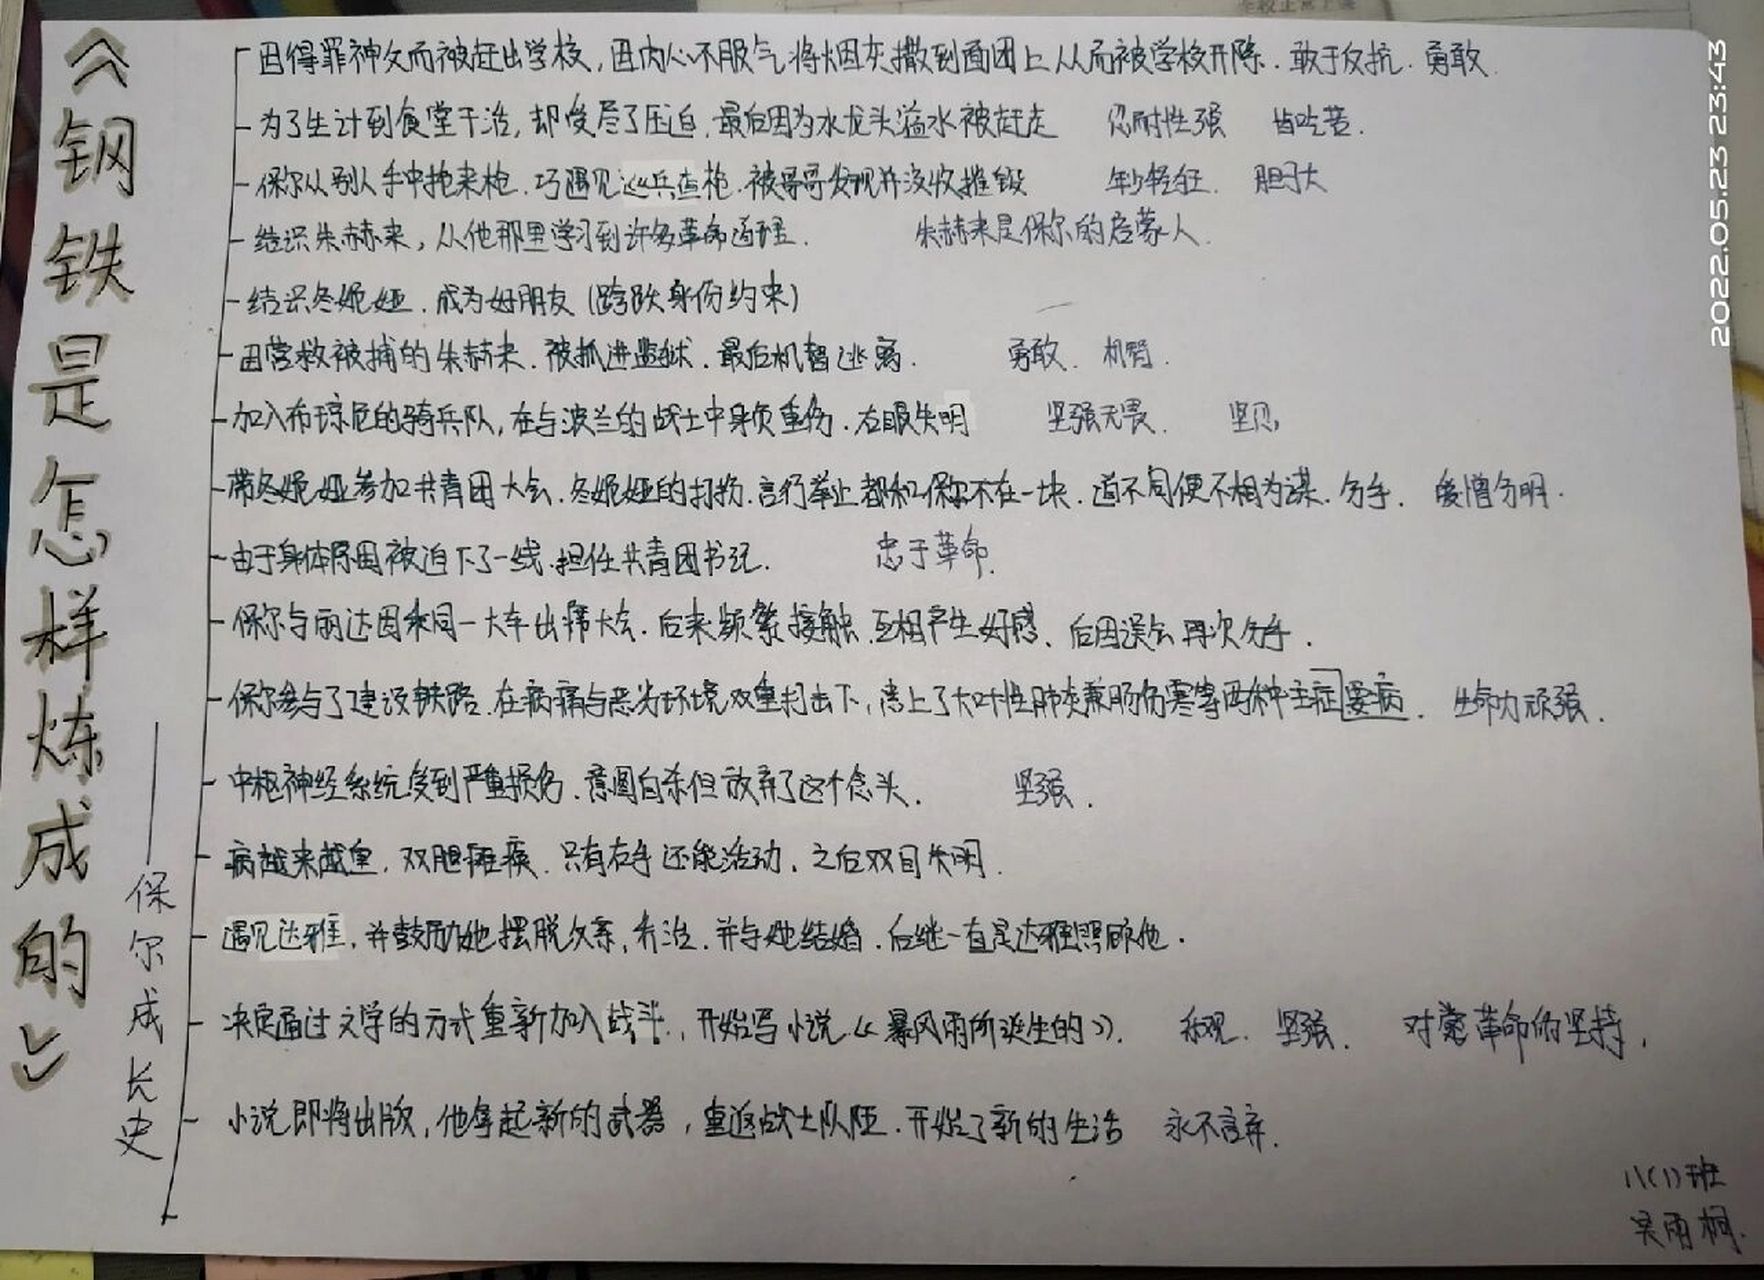 《钢铁是怎样炼成的》
——保尔成长史
因得罪神父而被赶出学校,因内心不服气将烟灰撒到面团上从而被学校开除. 敢于反抗. 勇敢.
为了生计到食堂干活,却受尽了压迫.最后因为水龙头溢水被赶走 忍耐性强 肯吃苦.
保尔从别人手中抢来枪.巧遇见巡兵查枪.被哥哥发现并没收摧毁 年少轻狂. 胆子大
结识朱赫来,从他那里学习到许多革命道理. 朱赫来是保尔的启蒙人.
结识冬妮娅.成为好朋友(跨跃身份约束)
因营救被捕的朱赫来.被抓进监狱.最后机智逃离. 勇敢. 机智.
加入布琼尼的骑兵队,在与波兰的战士中身负重伤.右眼失明 坚强无畏. 坚忍
带冬妮娅参加共青团大会.冬妮娅的打扮.言行举止都和保尔不在一块.道不同便不相为谋.分手. 爱憎分明.
由于身体原因被迫下了一线.担任共青团书记. 忠于革命.
保尔与丽达因乘同一大车出席大会.后来频繁接触.互相产生好感、后因误会再次分手.
保尔参与了建设铁路.在病痛与恶劣环境双重打击下,患上了大叶性肺炎兼肠伤寒等两种主症要病. 生命力顽强.
中枢神经系统受到严重损伤.意图自杀但放弃了这个念头. 坚强.
病越来越重,双腿瘫痪.只有右手还能活动、之后双目失明.
遇见达雅,并鼓励她摆脱父亲,并与她结婚.后继一直是达雅照顾他.
决定通过文学的方式重新加入战斗.,开始写小说《暴风雨所诞生的》. 乐观. 坚强. 对革命的坚持.
小说即将出版,他拿起新的武器,重返战士队伍.开始了新的生活 永不言弃.
八(1)班
吴雨桐.
2022.05.23 23:43